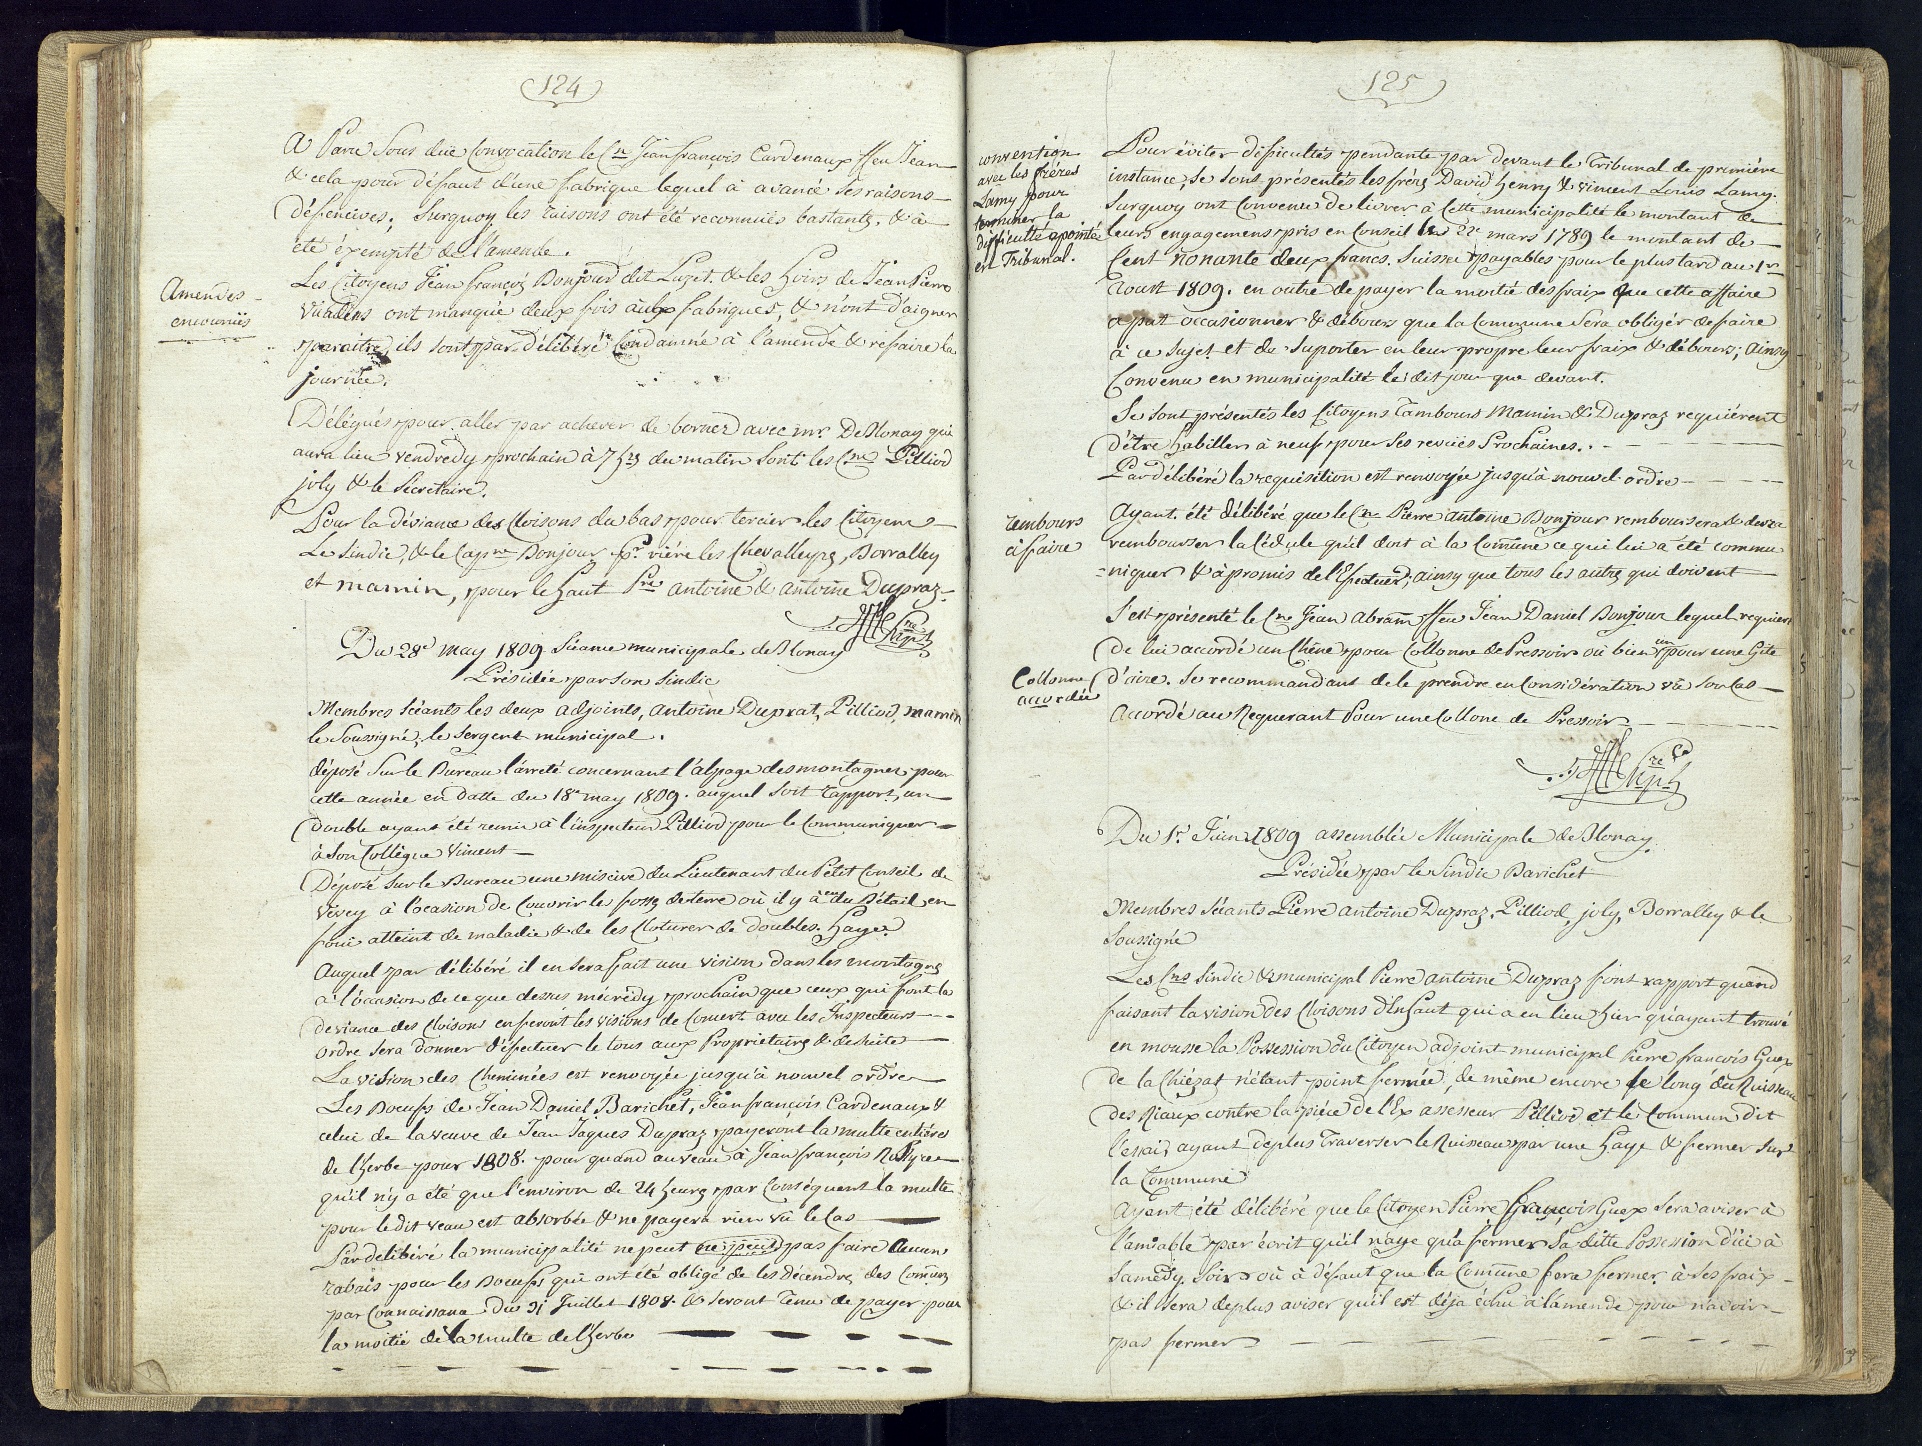 124
A Paru Sous due Convocation le Cn Jean françois Cardenaux ffeu Jean
& cela pour défaut d'une fabrique lequel à avancé ses raisons
défencives; Surquoy les raisons ont été reconnuës bastante, & à
été éxempté de l'amende.
Amendes
encouruës
Les Citoyens Jean françois Bonjour dit Luget & les hoirs de Jean Pierre
Vuadens ont manqué deux fois aux fabriques, & n'ont d'aigner
paraitre, ils sont par délibéré Condamné à l'amende & refaire la
journée.
Délégués pour aller par achever de borner avec mr. DeBlonay qui
aura lieu vendredy prochain à 7 hrs du matin sont les Cns Pilliod
joly & le Sécretaire.
Pour la déviance des Cloisons du bas pour tercier les Citoyens
Le Sindic, & le Capne Bonjour pr viére les Chevalleyrs, Borralley
et mamin, pour le haut Pre antoine & antoine Dupraz
Du 28e may 1809 Séance municipale de Blonay
Présidée par son Sindic
Membres Séants les deux adjoints, antoine Duprat, Pilliod, mamin
le Soussigné, le Sergent municipal.
déposé Sur le Bureau l'arreté concernant l'alpage des montagnes pour
cette année en datte du 18e may 1809. auquel soit rapport, un
double ayant été remis à l'inspecteur Pilliod pour le Communiquer
à Son Collègue Vincent
Déposé Sur le Bureau une miscive du Lieutenant du Petit Conseil de
Vevey à l'ocasion de Couvrir le fossz de terre où il y à eu du Bétail en
foui atteint de maladie & de les Cloturer de doubles haye
Auquel par délibéré il en sera fait une vision dans les montagnes
à l'occasion de ce que dessus mécredy prochain que ceux qui font la
deviance des Cloisons en feront les visions de Concert avec les Inspecteurs
ordre sera donner d'éfectuer le tous aux Propriétaires & de suite
La vision des Cheminées est renvoyée jusqu'à nouvel ordre
Les Boeufs de Jean Daniel Barichet, Jean françois Cardenaux &
celui de la veuve de Jean Jaques Dupraz payeront la multe entière
de l'herbe pour 1808. pour quand au veau à Jean françois
qu'il n'y a été que l'environ de 24 heures par Conséquent la multe
pour le dit veau est absorbée & ne payera rien vû le Cas
Par delibéré la municipalité ne peut ne peut pas faire Aucun
rabais pour les Boeufs qui ont été obligé de les décendre des Comuns
par Connaissance du 31 Juillet 1808. & Seront Tenu de payer pour
la moitié de la multe de l'herbe
125
convention
avec les frères
Lamy pour
terminer la
difficulté apointée
en Tribunal.
Pour éviter difficultés pendante par devant le Tribunal de première
instance, Se sont présentés les frères David henry & vincent Louis Lamy.
Surquoy ont Convenu de livrer à Cette municipalité le montant de
leurs engagemens pris en Conseil le 22e mars 1789 le montant de
Cent nonante deux francs Suisse payables pour le plus tard au 1er
Aoust 1809. en outre de payer la moitié des fraix que cette affaire
a put occasionner & débours que la Commune Sera obligér de faire
à ce Sujet et du Suporter en leur propre leur fraix & débours; Ainsy
Convenu en municipalité le dit jour que devant.
Se sont présentés les Citoyens Tambours Mamin & Dupraz requiérent
d'être habiller à neuf pour les revuës Prochaines.
Par délibéré la requisition est renvoyée jusqu'à nouvel ordre
rembours
à faire
Ayant été délibéré que le Cn Pierre antoine Bonjour remboursera & devra
rembourser la Cédule qu'il doit à la Comûne ce qui lui a été commu
niquer & à promis de l'Efectuer; ainsy que tous les autres qui doivent
S'est présenté le Cn Jean Abram ffeu Jean Daniel Bonjour lequel requiert
de lui accordé un Chêne pour Collonne de Pressoir ou bien un pour une Gite
Collonne
accordée
d'aire. Se recommandant de le prendre en Considération vû son Cas
Accordé au Requerant Pour une Collone de Pressoir
Du 1r Juin 1809 assemblée Municipale de Blonay.
Présidée par le Sindic Barichet
Membres Séants Pierre antoine Dupraz, Pilliod, joly, Borralley & le
Soussigné
Les Cns Sindic & municipal Pierre antoine Dupraz font rapport quand
faisant la vision des Cloisons d'Enhaut qui a eu lieu hier qu'ayant trouvé
en mousse la Possession du Citoyen adjoint municipal Pierre françois Guex
de la Chiésaz n'étant point fermée, de même encore le long du Ruisseau
des Riaux contre la pièce de l'Ex assesseur Pilliod et le Commun dit
l'essai, ayant deplus Traverser le Ruisseau par une haye & fermer sur
la Commune
Ayant été délibéré que le Citoyen Pierre françois Guex Sera aviser à
l'amiable par écrit qu'il n'aye qu'à fermer Sa ditte Possession d'ici à
Samedy Soir où à défaut que la Comûne fera fermer à Ses fraix
& il Sera deplus aviser qu'il est déja échu à l'amende pour n'avoir
pas fermer